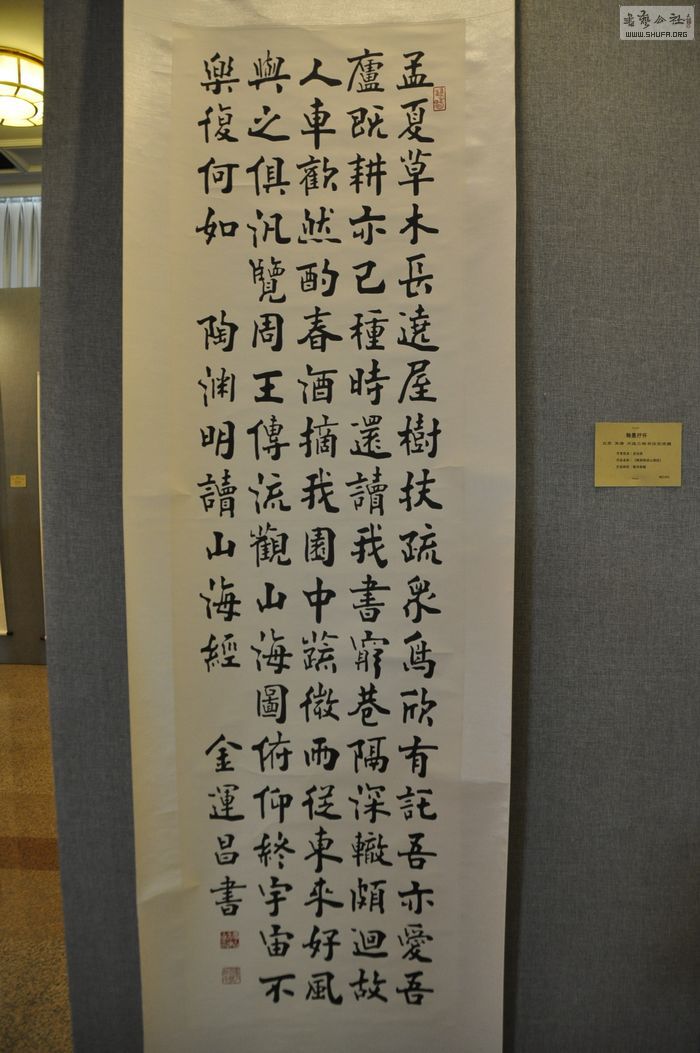 孟夏草木長遶屋樹扶疏衆鳥欣有託吾亦愛吾
廬既耕亦已種時還讀我書窮巷隔深轍頗迴故
人車歡然酌春酒摘我園中蔬微雨從東来好風
與之俱汎覽周王傳流觀山海圖俯仰終宇宙不
樂復何如 陶渊明讀山海經 金運昌書
書藝公社
WWW.SHUFA.ORG